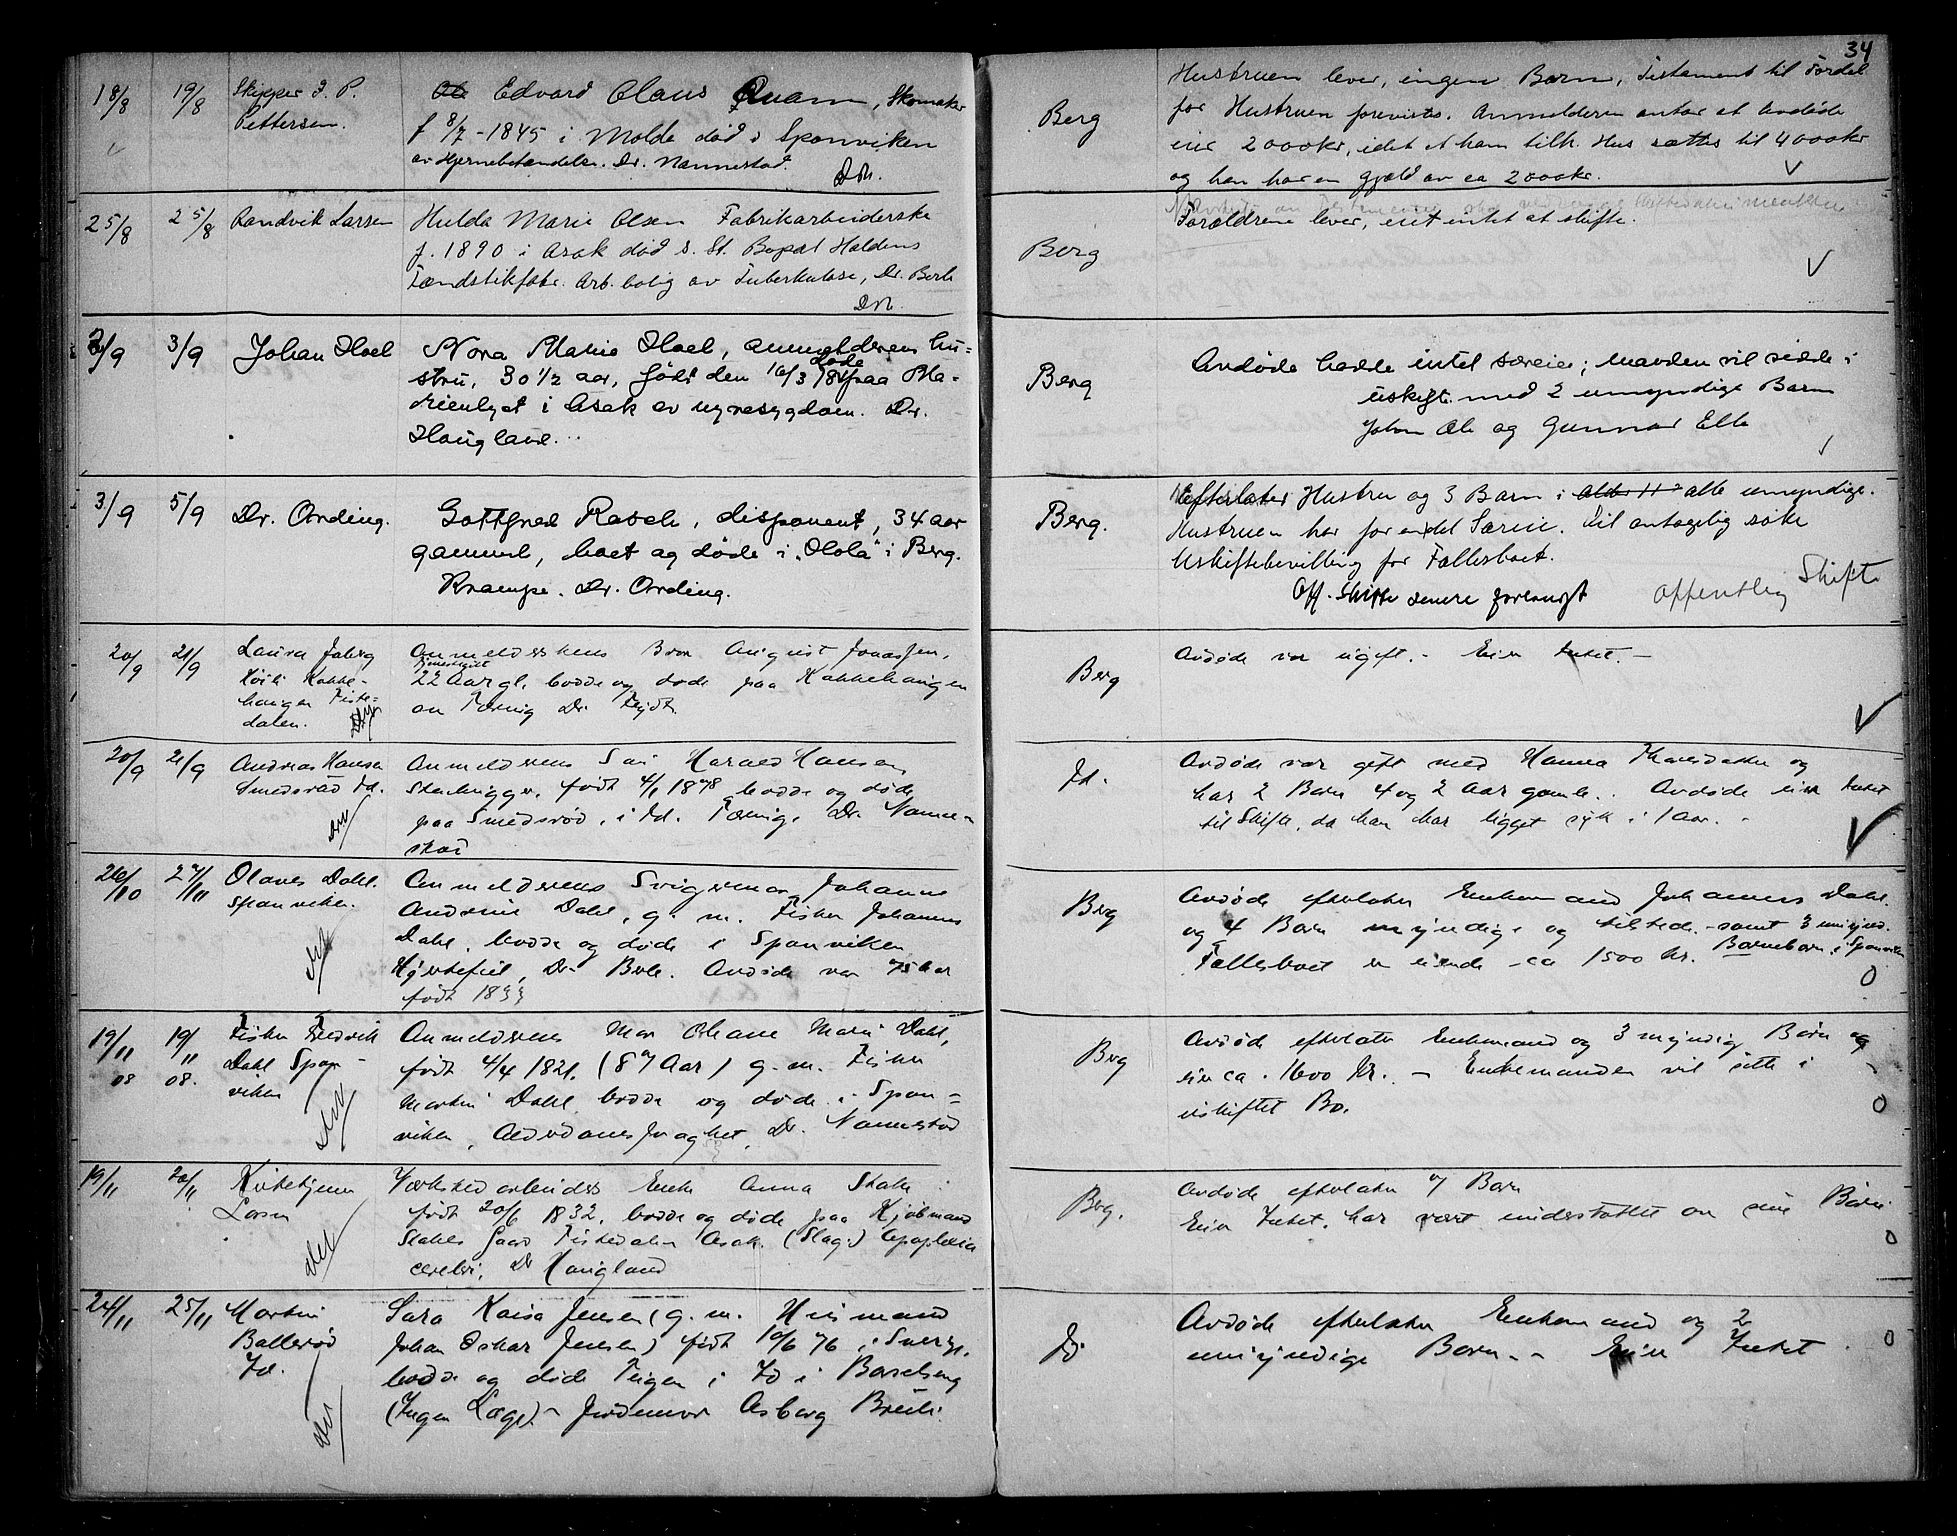 34
18/8 19/8 Skipper J. P. Pettersen.
Edvard Claus Quam, Skomaker
f 8/7-1845 i Molde död i Sponviken
av Hjernebetændelse. Dr. Nannestad.
Berg
Hustruen lever, ingen Barn, Testament til Fordel
for Hustruen forevistes. Anmelderen antar at Avdöde
eier 2000kr, idet et ham tilh. Hus sættes til 4000kr
og han har en gjæld av ca 2000kr.
25/8 25/8 Randvik Larsen
Hulda Marie Olsen Fabrikarbeiderske
f. 1890 i Asak död s. St. Bopæl Haldens
Tændstikfabr. Arb. bolig av Tuberkulose, Dr. Bork
Berg
Forældrene lever, eiet intet at skifte.
2/9 3/9 Johan Hoel
Nora Marie Hoel, anmelderens hu=
stru, 30 1/2 aar, født den 16/3 døde paa Ma-
rienlyst i Asak av nyresygdom. Dr.
Haugland.
Berg
Avdøde hadde intet særeie; manden vil sidde i
uskifte med 2 umyndige Barn
Johan Ole og Gunnar Elle
3/9 5/9 Dr. Ording.
Gottfred Rasch, disponent, 34 aar
gammel, boet og døde i „Hola" i Berg.
Krampe. Dr. Ording.
Berg.
Efterlater Hustru og 3 Barn i alle umyndige.
Hustruen har for en del Særeie. Vil antagelig søke
Uskiftebevilling for Fællesboet.
Off. Skifte senere forlangt offentlig Skifte
20/9 21/9 Laura
Kakke-
haugen Tiste-
dalen.
Anmelderskens Bror August Jonassen,
22 Aar gl. bodde og døde paa Kakkehaugen
av Tæring Dr.
Berg
Avdøde var ugift. - Eier Intet. -
20/9 21/9 Andreas Hansen
Smedsrød Id.
Anmelderens Søn Harald Hansen
Stenhugger, født 4/1 1878 bodde og døde
paa Smedsrød, i Id. Tæring. Dr. Nanne-
stad
Id.
Avdøde var gift med Hanna og
har 2 Barn 4 og 2 Aar gamle. Avdøde eier Intet
til Skifte, da han har ligget syk i 1 Aar. -
26/10 27/11 Olaves Dahl.
Sponviken.
Anmelderens Svigermor Johanne
Andrine Dahl, g. m. Fisker Johannes
Dahl, bodde og døde i Sponviken
Hjertefeil, Dr. Bole. Avdøde var 75 Aar
født 1833
Berg
Avdøde efterlater Enkemand Johannes Dahl.
og 4 Barn myndige og tilstede. - samt 3 umynd.
Barnebarn i Sponviken
Fællesboet er eiende ca 1500 kr.
0
19/11 08 19/11 08. Fisker Fredrik
Dahl Spon-
viken
Anmelderens Mor Oleane Marie Dahl,
født 4/4 1821. (87 Aar) g. m. Fisker
Martin Dahl bodde og døde i Spon=
viken, Alderdomssvaghet, Dr. Nannestad
Berg
Avdøde efterlater Enkemand og 3 myndig Børn og
eier ca. 1600 Kr. - Enkemanden vil sitte i
uskiftet Bo.
0
19/11 20/11 Kirketjener
Larsen
Værkstedarbeiders Enke Anna Stake
født 20/6 1832, bodde og døde paa Kjøbmand
Stakes Gaard Tistedalen Asak. (Slag:) Apoplexia
cerebri, Dr Haugland
Berg.
Avdøde efterlater 7 Barn
Eier Intet. har vært understøttet av sine Børn
0
24/11 25/11 Martin
Ballerød
Id.
Sara Kaisa Jensen (g. m. Husmand
Johan Oskar Jensen) født 10/6 76 i Sverge,
bodde og døde Teigen i Id i Barselseng
(Ingen Læge) - Jordemor Asborg Breili.
Id
Avdøde efterlater Enkemand og 2
umyndige Barn - - Eier Intet.
0